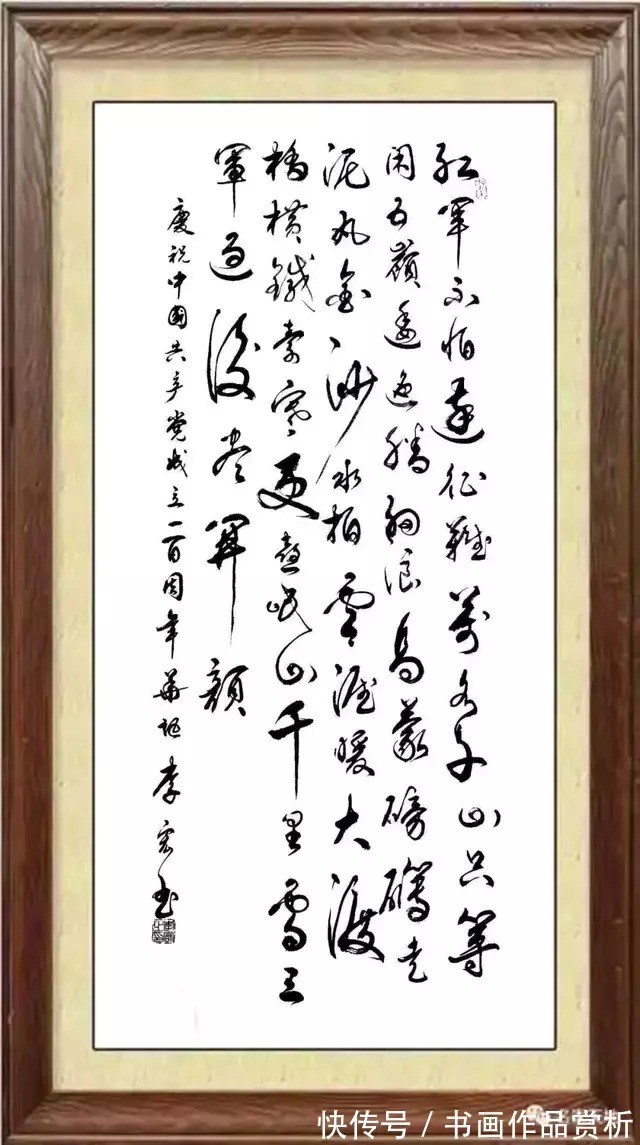 紅軍不怕遠征難萬水千山只等
閑五嶺逶迤騰細浪烏蒙磅礴走
泥丸金沙水拍雲涯暖大渡
橋橫鐵索寒更喜岷山千里雪三
軍過後尽開顏
慶祝中國共产党成立一百周年 李
快传号 / 书画作品赏析